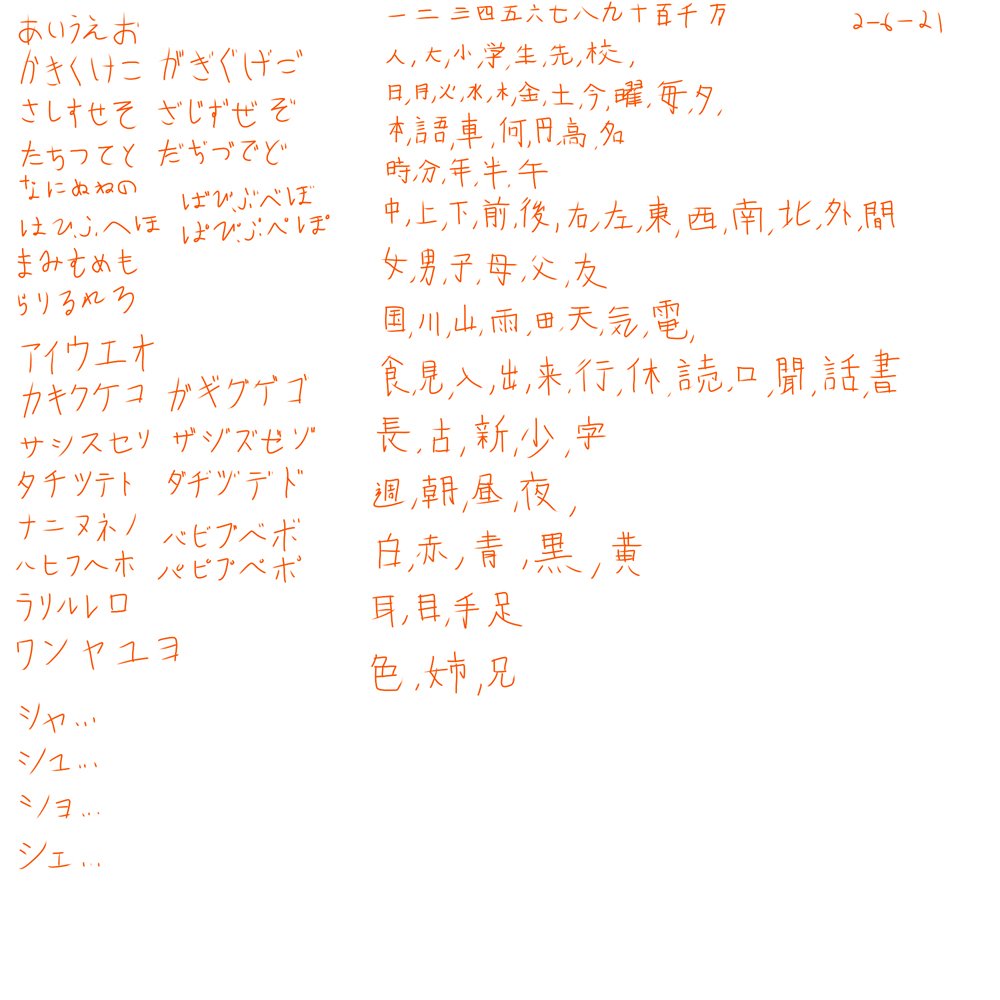 あいうえお
かきくけこ がぎぐげご
さしすせそ ざじずぜぞ
たちつてと だぢづでど
なにぬねの
はひふへほ ばびぶべぼ
ぱぴぷぺぽ
まみむめも
らりるれろ
アイウエオ
カキクケコ ガギグゲゴ
サシスセソ ザジズゼゾ
タチツテト ダヂヅデド
ナニヌネノ
ハヒフヘホ バビブベボ
パピプペポ
ラリルレロ
ワンヤユヨ
シャ...
シュ...
ショ...
シェ...
一二三四五六七八九十百千万
人,大,小,学,生,先,校,
日,月,火,水,木,金,土,今,曜,毎,夕,
本,語,車,何,円,高,名
時,分,年,半,午
中,上,下,前,後,右,左,東,西,南,北,外,間
女,男,子,母,父,友
国,川,山,雨,田,天,気,電,
食,見,入,出,来,行,休,読,口,聞,話,書
長,古,新,少,字
週,朝,昼,夜,
白,赤,青,黒,黄
耳,目,手足
色,姉,兄
2-6-21